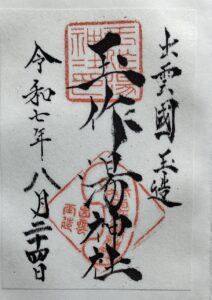 出雲國玉造
玉作湯神社
令和七年
八月二十四日